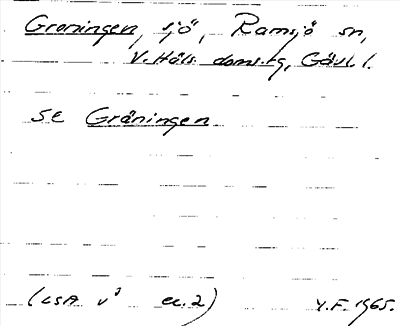 Groningen, sjö, Ramsjö sn,
V. Häls. doms.tg, Gävl. l.
se Gröningen
(LSA v³ ec. 2) Y.F. 1965.